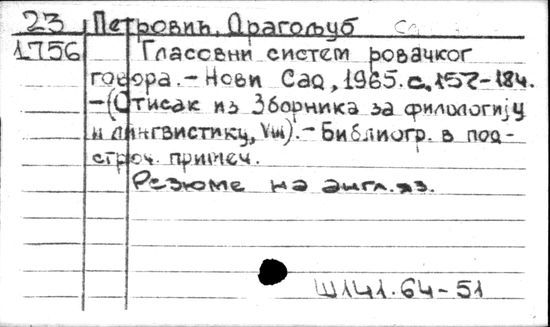 23 Петровић, Драгољуб
1756 Гласовни систем ровачког
говора. – Нови Сад, 1965. с. 157–184.
– (Отисак из Зборника за филологију
и лингвистику, VIII). – Библиогр. в под-
строч. примеч.
Резюме на англ. яз.
Ш141.64–51